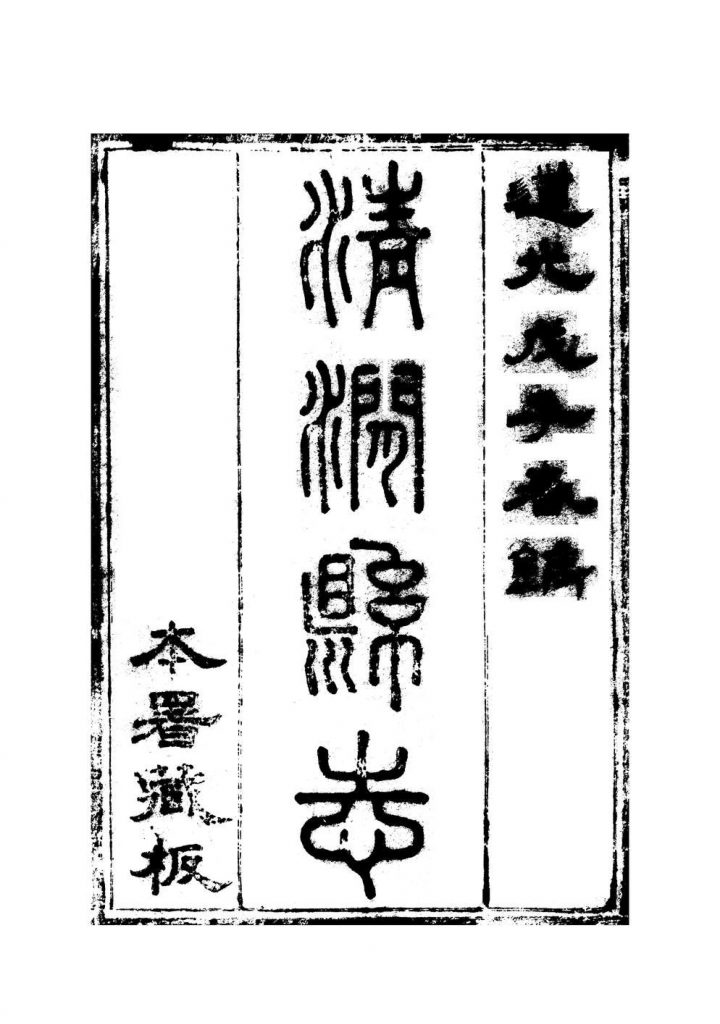 道光戊子春鐫
清澗縣志
本署藏板